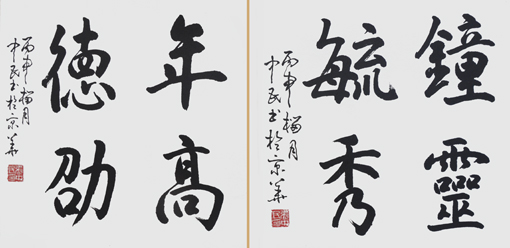 鐘靈
毓秀
丙申榴月
中民书於京华
年高
德劭
丙申榴月
中民书於京华